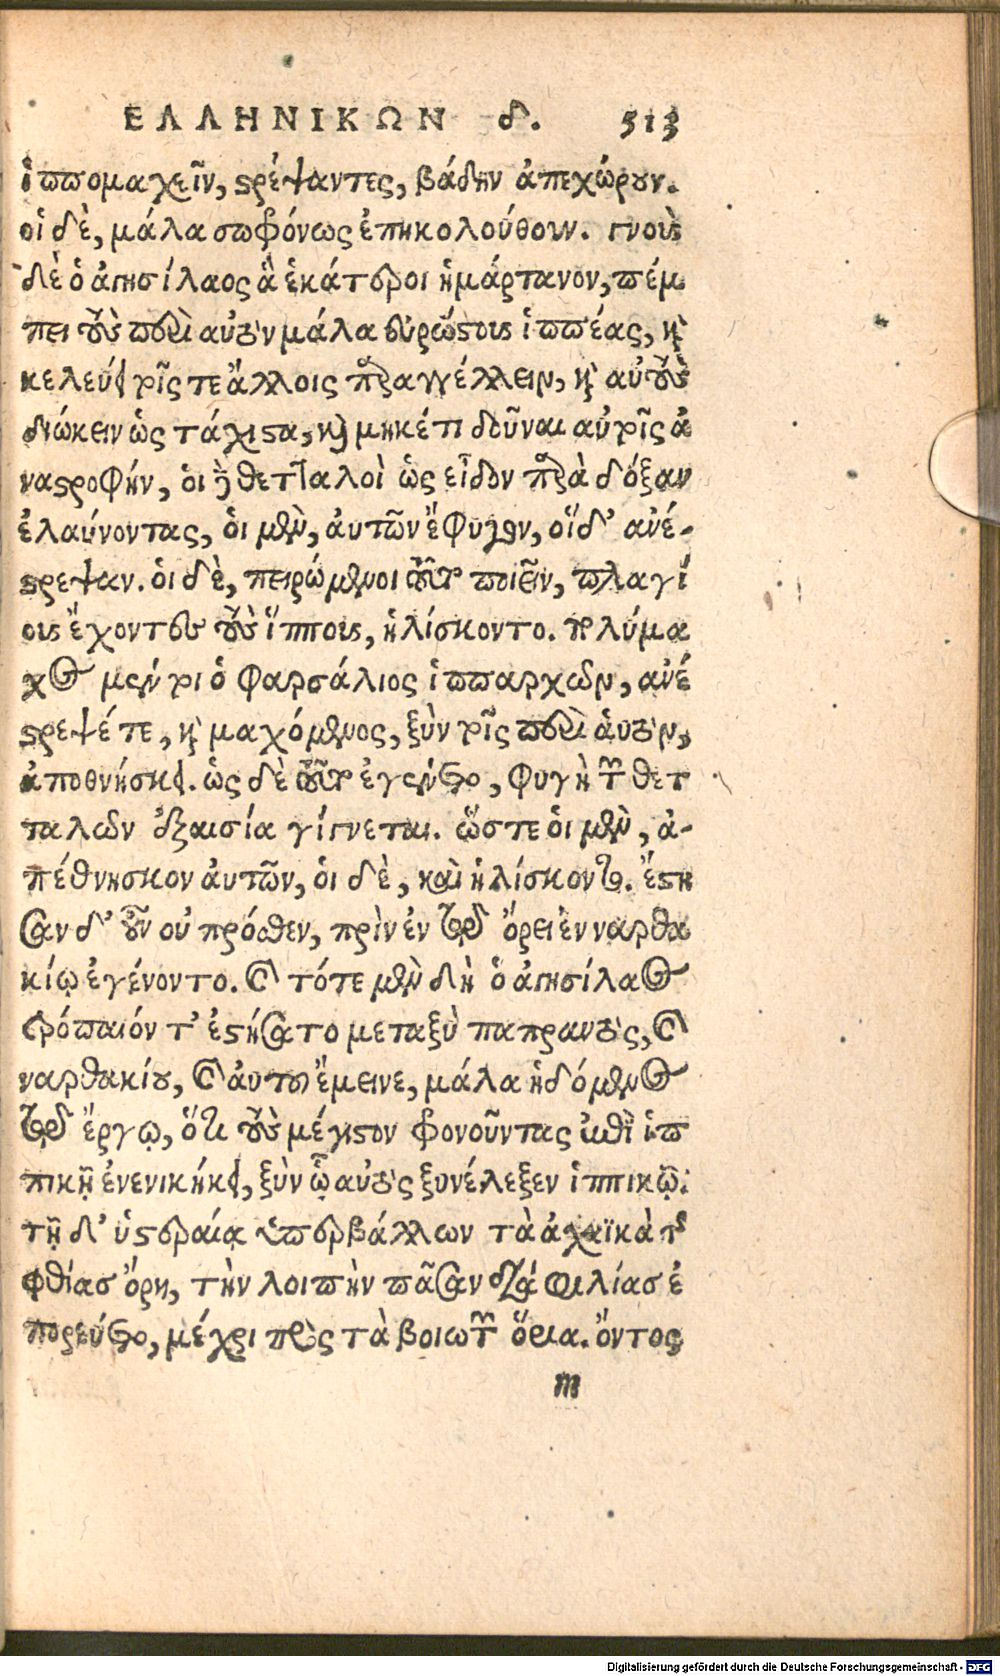 ΕΛΛΗΝΙΚΩΝ δ. 513
ἱππομαχεῖν, στρέψαντες, βάδην ἀπεχώρουν.
οἱ δὲ, μάλα σωφρόνως ἐπηκολούθουν. γνοὺς
δὲ ὁ ἀγησίλαος ἃ ἑκάτεροι ἡμάρτανον, πέμ
πει τοὺς περὶ αὐτὸν μάλα εὐρώστους ἱππέας, καὶ
κελεύει τοῖς τε ἄλλοις παραγγέλλειν, καὶ αὐτοὺς
διώκειν ὡς τάχιστα, καὶ μηκέτι δοῦναι αὐτοῖς ἀ
ναστροφήν, οἱ δὲ θετταλοὶ ὡς εἶδον παρὰ δόξαν
ἐλαύνοντας, οἱ μὲν, αὐτῶν ἔφυγον, οἵ δ' ἀνέ-
στρεψαν. οἱ δὲ, πειρώμενοι τοῦτο ποιεῖν, πλαγί
ους ἔχοντες τοὺς ἵππους, ἡλίσκοντο. πολύμα
χος μέντοι ὁ φαρσάλιος ἱππαρχῶν, ἀνέ
στρεψέ τε, καὶ μαχόμενος, ξὺν τοῖς περὶ αὑτὸν,
ἀποθνήσκει. ὡς δὲ τοῦτο ἐγένετο, φυγὴ τῶν θετ
ταλῶν ἐξαισία γίγνεται. ὥστε οἱ μὲν, ἀ-
πέθνησκον αὐτῶν, οἱ δὲ, καὶ ἡλίσκοντο. ἔστη
σαν δ' οὖν οὐ πρόσθεν, πρὶν ἐν τῷ ὄρει ἐν ναρθα
κίῳ ἐγένοντο. καὶ τότε μὲν δὴ ὁ ἀγησίλαος
τρόπαιόν τ' ἐστήσατο μεταξὺ παπραντὸς, καὶ
ναρθακίου, καὶ αὐτοῦ ἔμεινε, μάλα ἡδόμενος
τῷ ἔργῳ, ὅτι τοὺς μέγιστον φρονοῦντας ἐπὶ ἱπ
πικῇ ἐνενικήκει, ξὺν ᾧ αὐτὸς ξυνέλεξεν ἱππικῷ.
τῇ δ' ὑστεραίᾳ ὑπερβάλλων τὰ ἀχαϊκὰ τῆς
φθίας ὄρη, τὴν λοιπὴν πᾶσαν διὰ φιλίας ἐ
πορεύετο, μέχρι πρὸς τὰ βοιωτῶν ὅρια. ὄντος
m
Digitalisierung gefördert durch die Deutsche Forschungsgemeinschaft - DFG